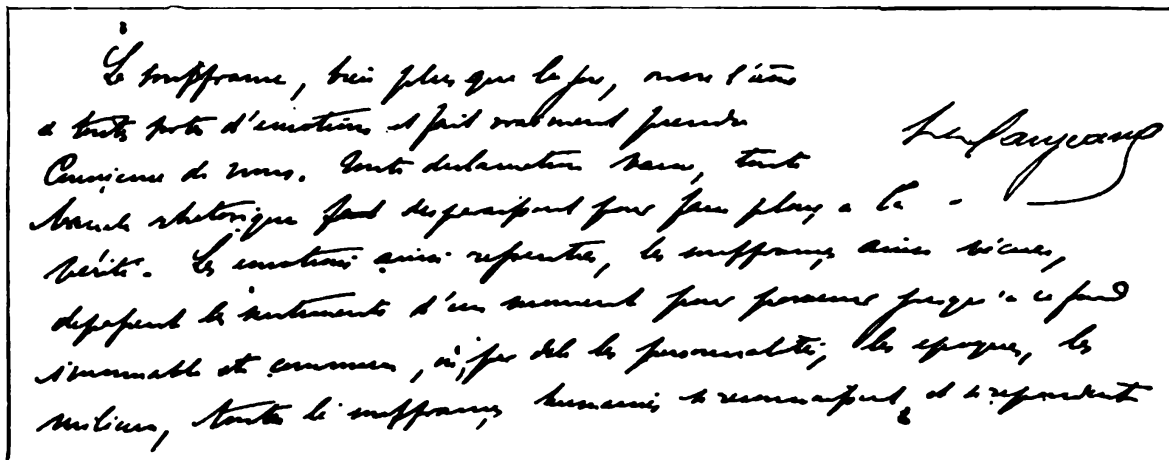 La souffrance, bien plus que la joie, ouvre l'âme
à toutes sortes d'émotions et fait vraiment prendre
Conscience de nous. Toute declamation vaine, toute
banale rhetorique font disparaissent pour faire place à la
vérité. Les emotions ainsi ressenties, les souffrances ainsi vécues,
depassent les sentiments d'un moment pour parvenir jusqu'à ce fond
immuable et commun, où, par delà les personnalités, les epoques, les
milieux, toutes les souffrances humaines se reconnaissent et se repondent